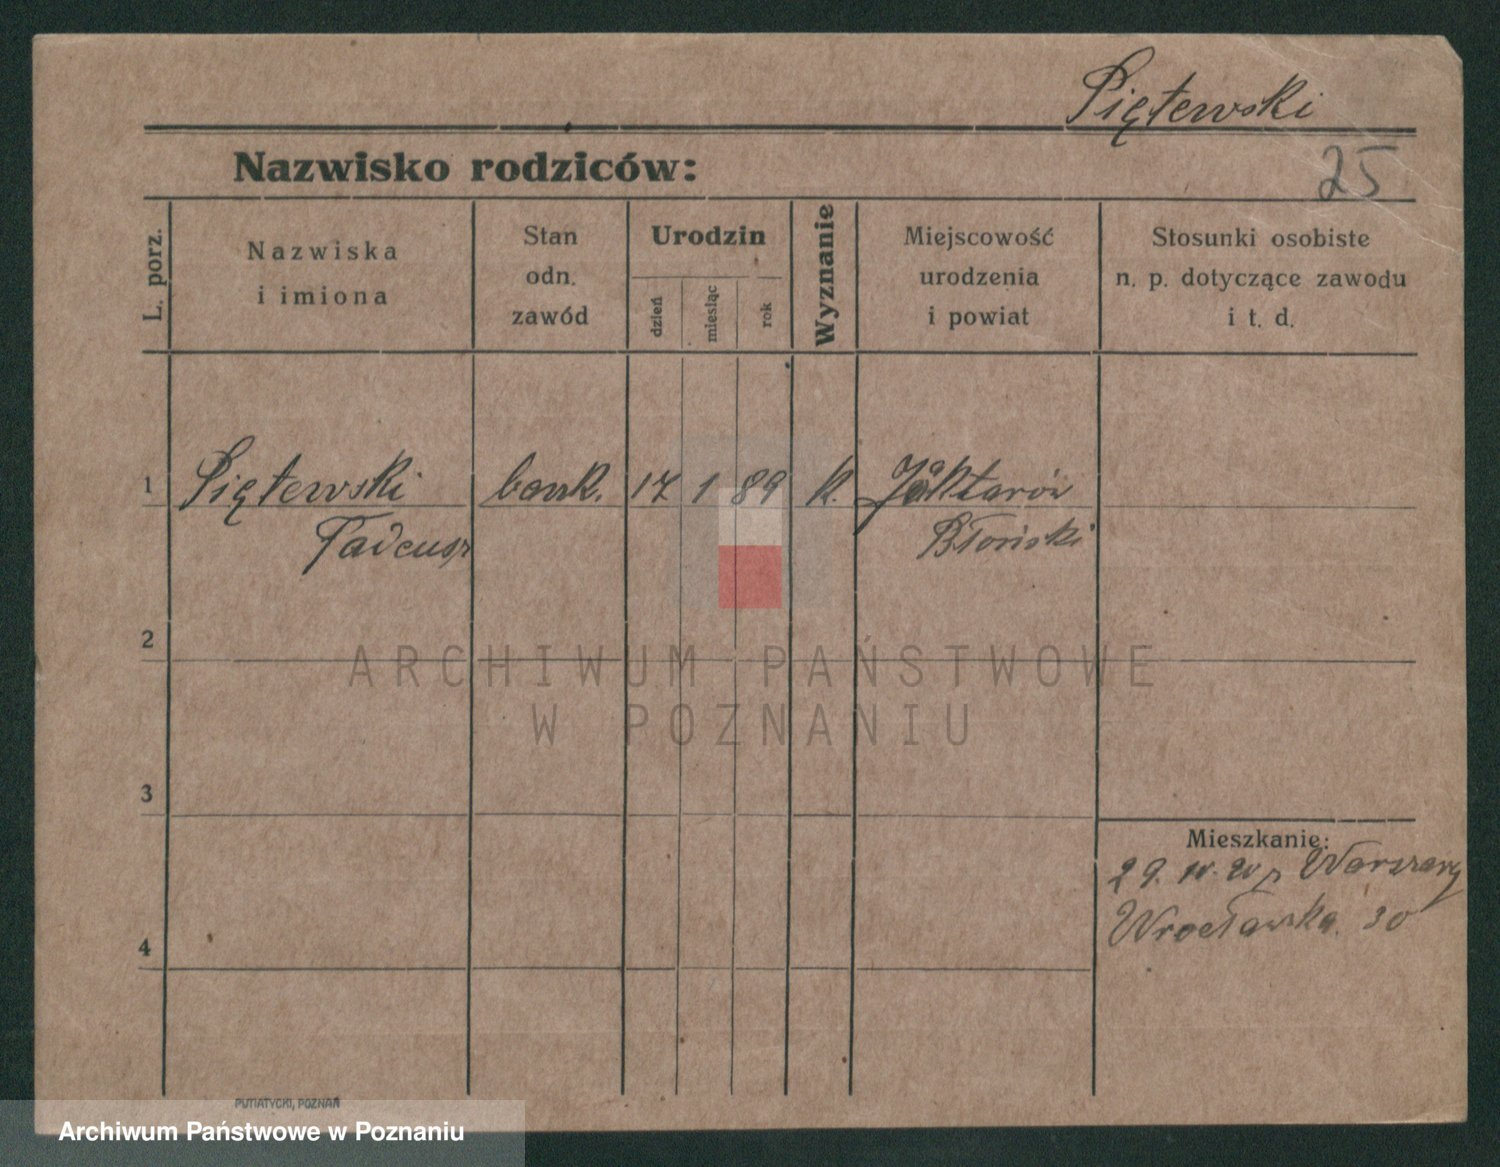 Piętewski
Nazwisko rodziców:
25
L. porz.
Nazwiska
i imiona
Stan
odn.
zawód
Urodzin
dzień
miesiąc
rok
Wyznanie
Miejscowość
urodzenia
i powiat
Stosunki osobiste
n. p. dotyczące zawodu
i t. d.
1 Piętewski bank. 17 1 89 k. Jaktorów
Tadeusz Błoński
2
ARCHIWUM PAŃSTWOWE
W POZNANIU
3
Mieszkanie:
29. IV. 20 z Warszawy
4 Wrocławska 30
PUTIATYCKI, POZNAŃ
Archiwum Państwowe w Poznaniu